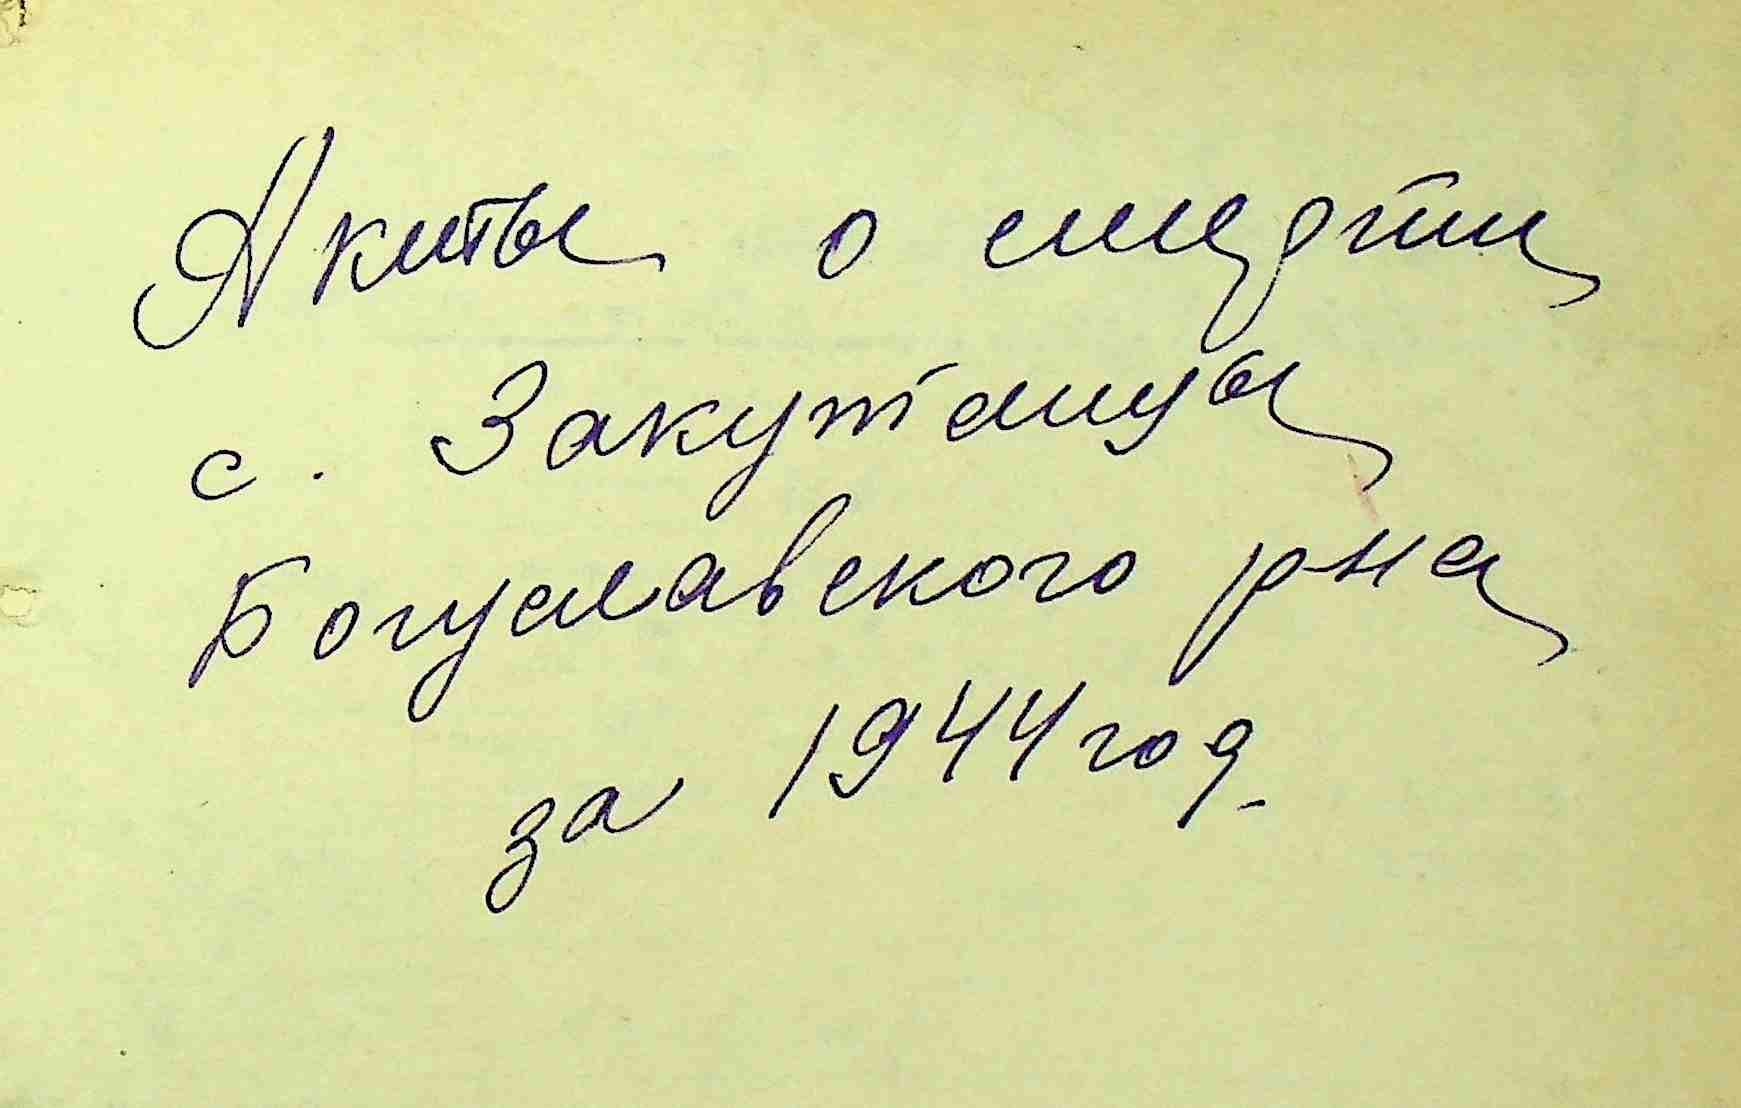 Акты о смерти
с. Закутинцы
Богуславского р-на
за 1944 год.